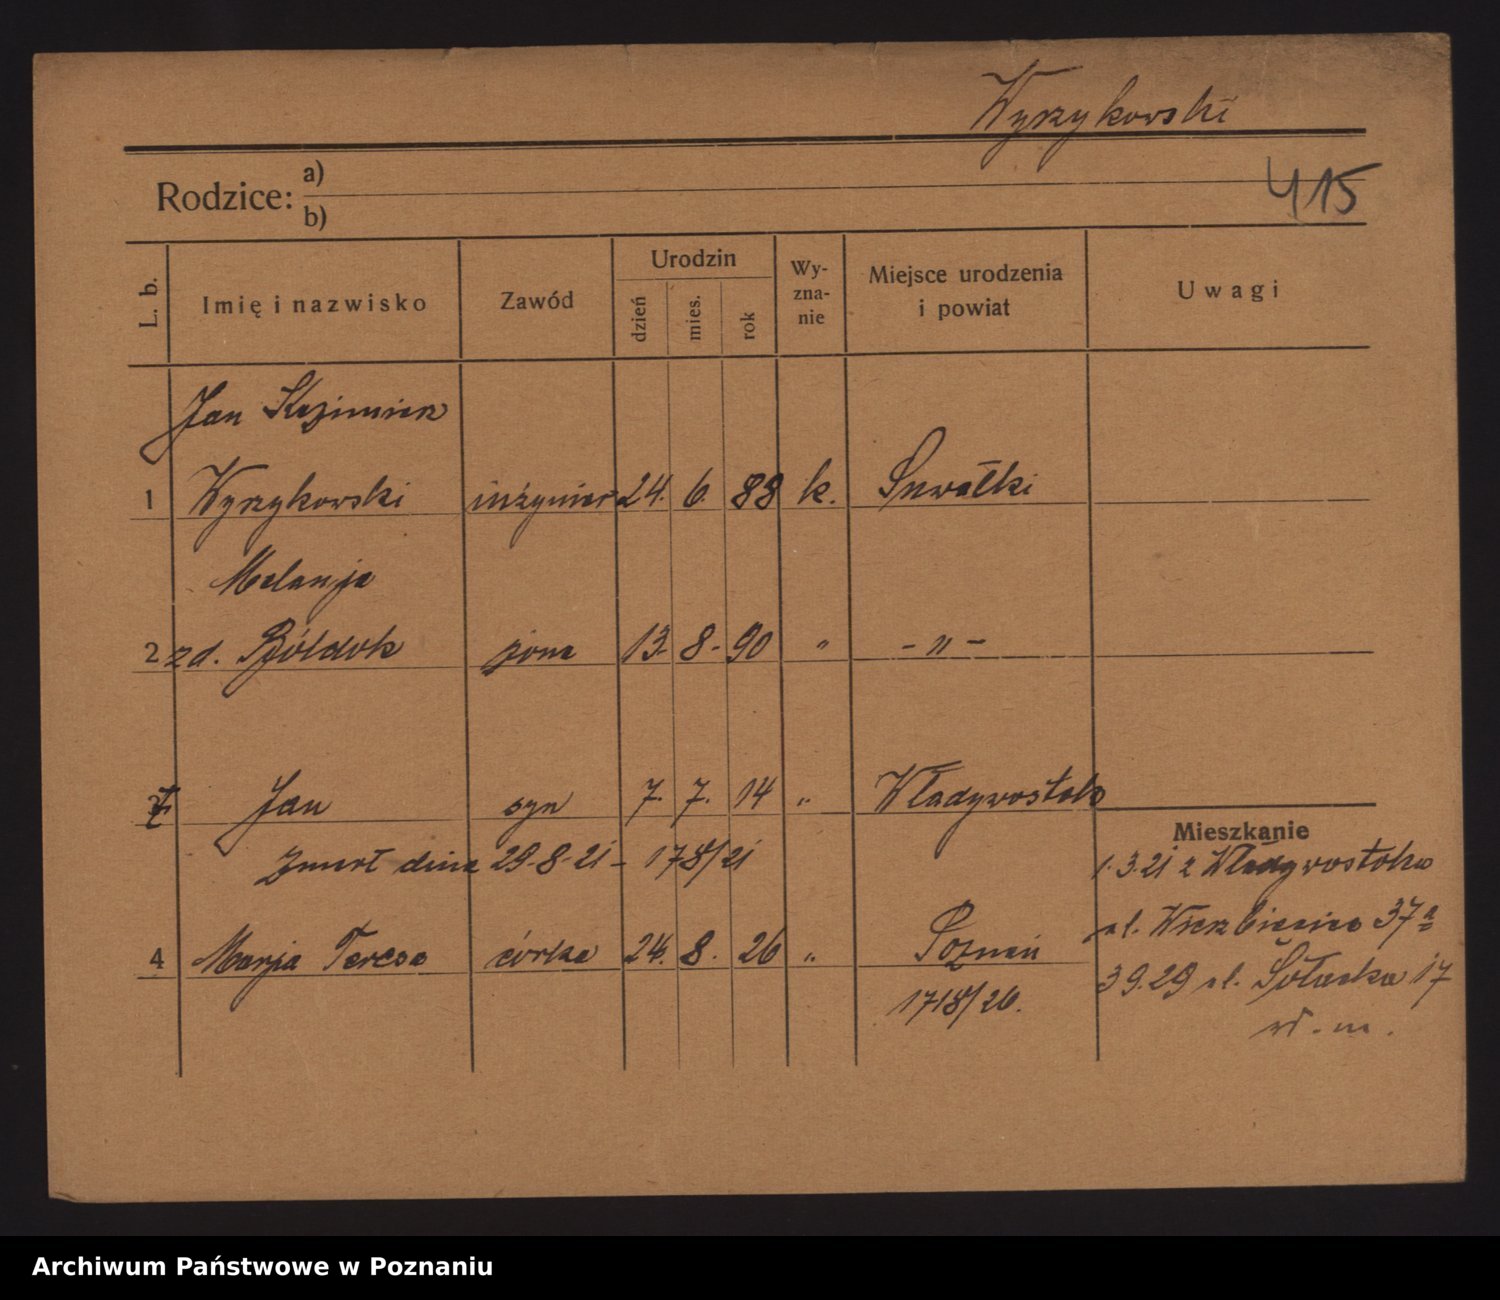 Wyrzykowski
415
Rodzice: a)
b)
L. b. Imię i nazwisko Zawód Urodzin dzień mies. rok Wy-zna-nie Miejsce urodzenia i powiat Uwagi
Jan Kazimierz
1 Wyrzykowski inżynier 24. 6. 88 k. Suwałki
Melanja
2 zd. żona 13. 8. 90 " - " -
Jan syn 7. 7. 14 " Władywostok
Mieszkanie
zmarł dnia 29.8.21 - 1718/21
1.3.21 z Władywostoku
ul. Wierzbięcice 37a
4 Marja Teresa córka 24. 8. 26 " Poznań
39.29 ul. Sołacka 17
1718/26.
wł. m.
Archiwum Państwowe w Poznaniu